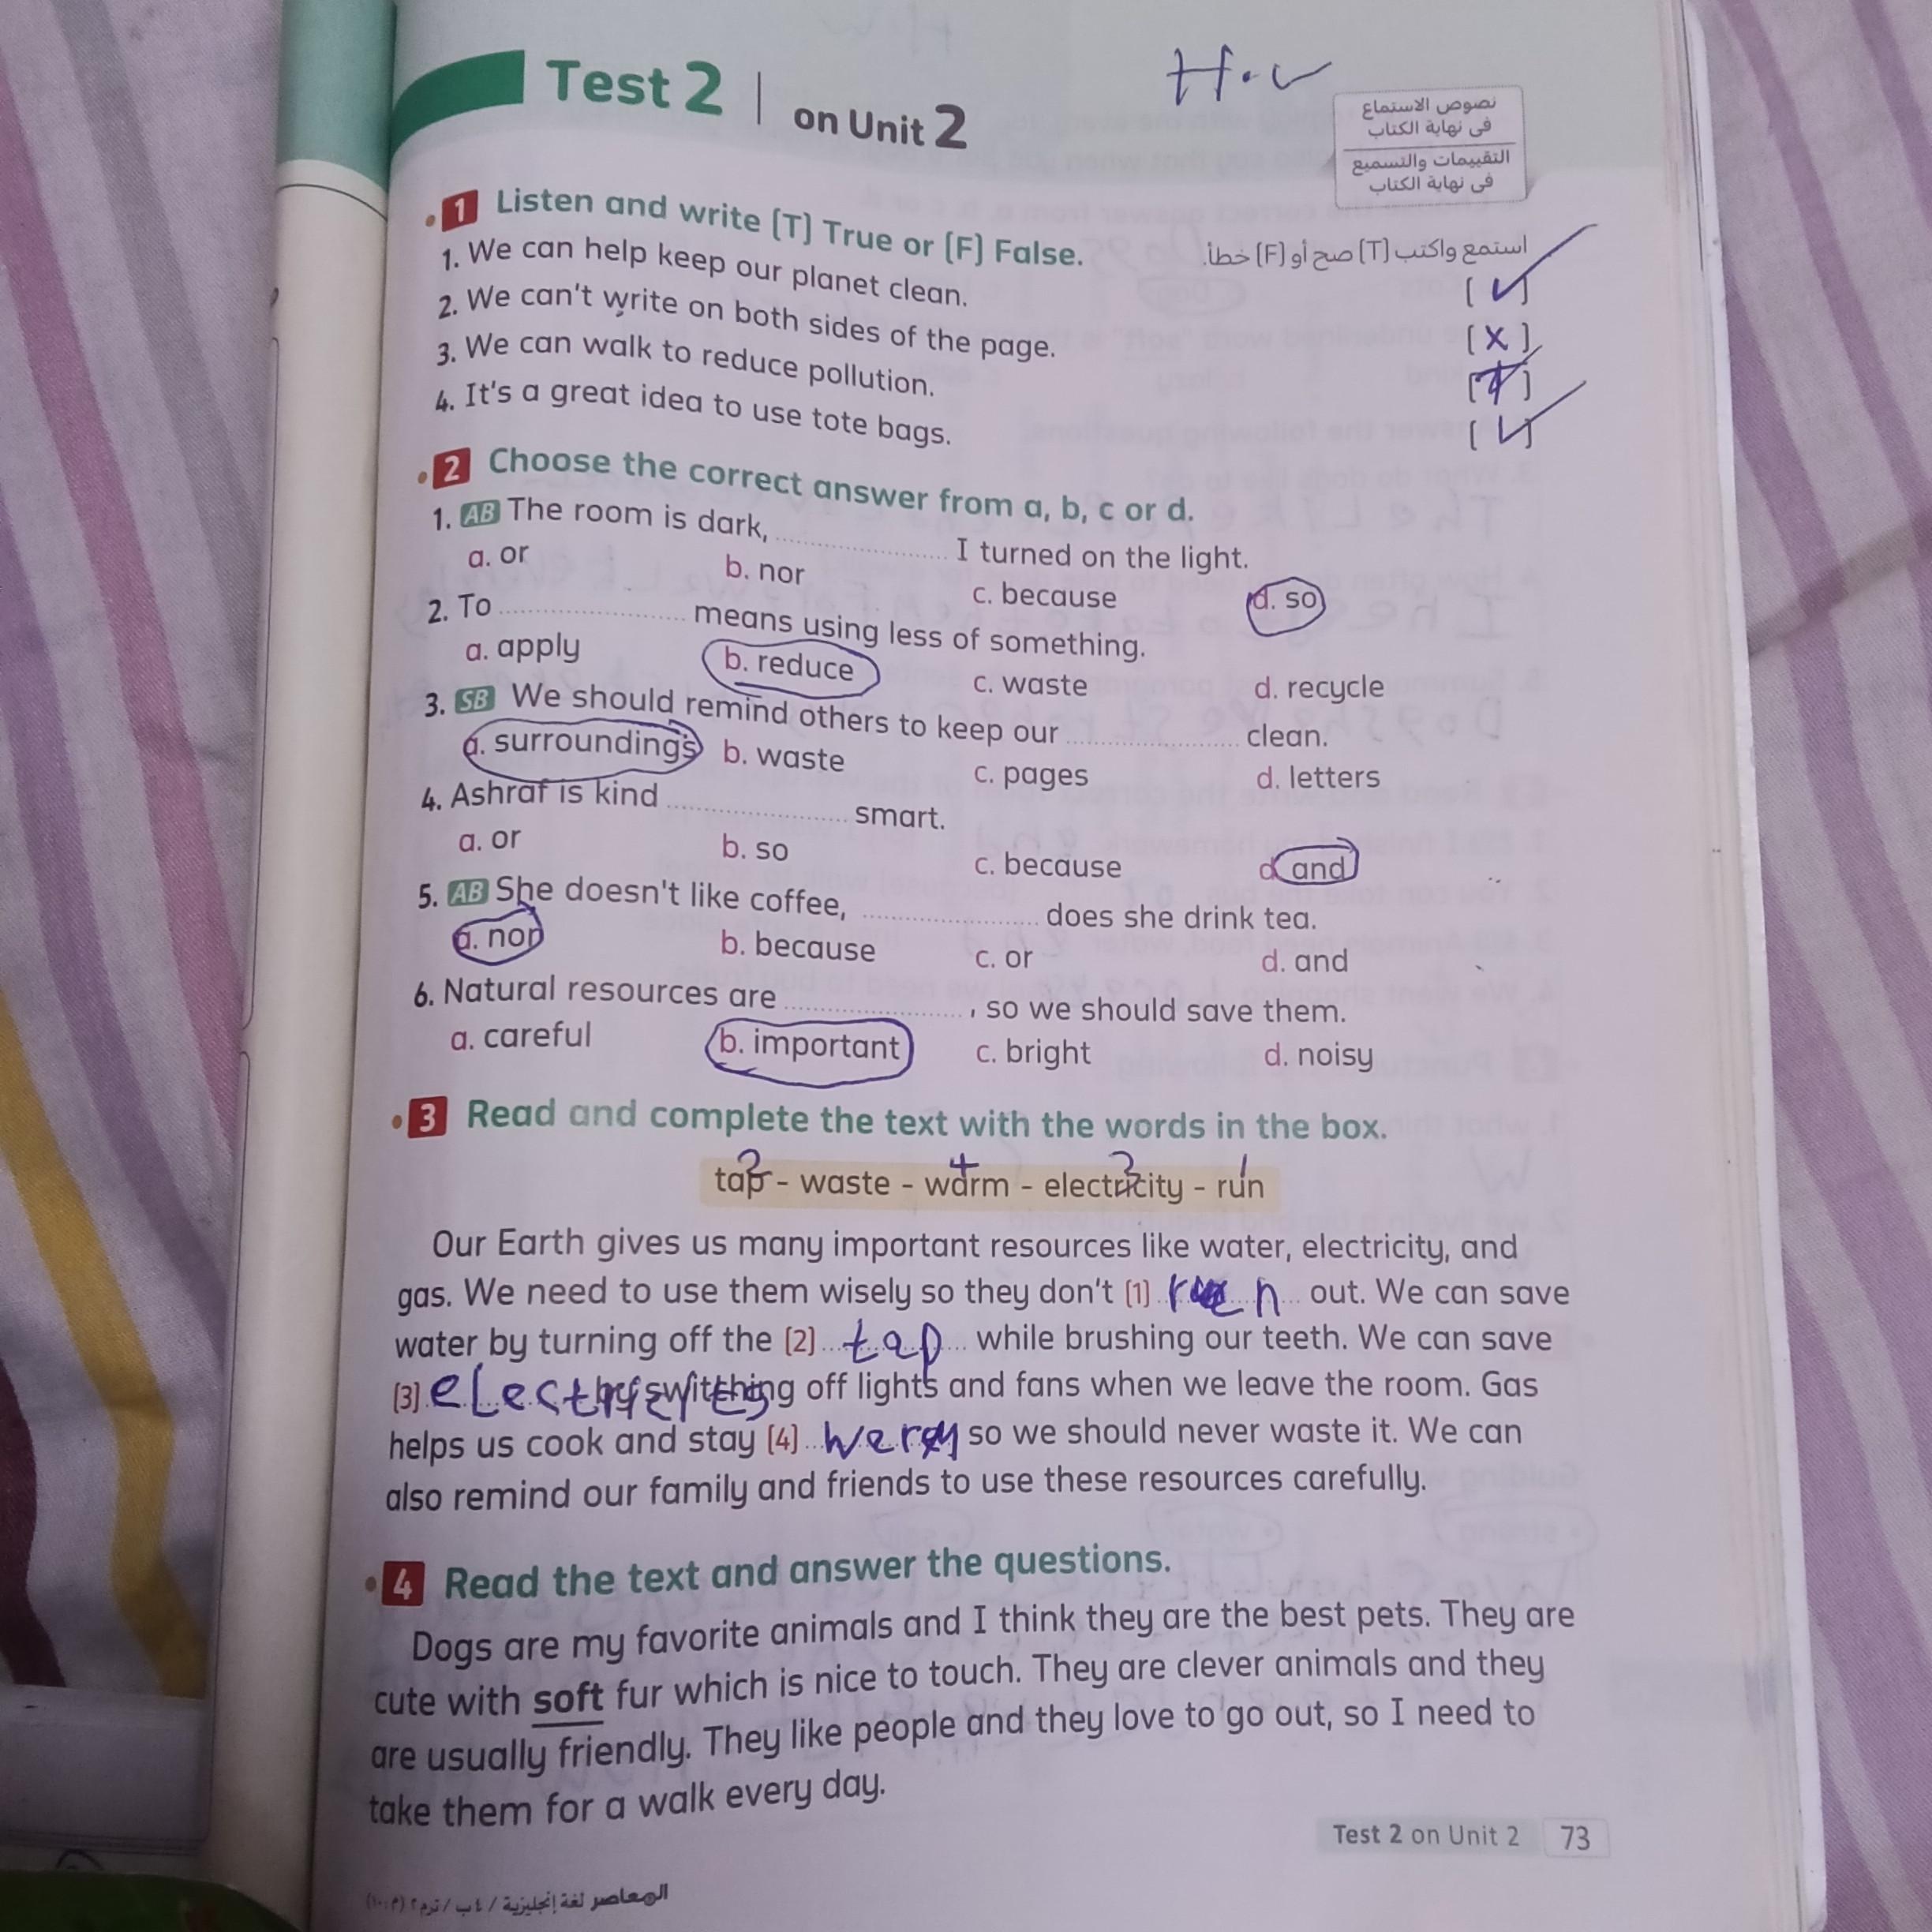 Test 2 | on Unit 2
H.w
نصوص الاستماع
فى نهاية الكتاب
التقييمات والتسميع
فى نهاية الكتاب
1 Listen and write [T] True or [F] False.
استمع واكتب [T] صح أو [F] خطأ.
1. We can help keep our planet clean. [✓]
2. We can't write on both sides of the page. [x]
3. We can walk to reduce pollution. [ ]
4. It's a great idea to use tote bags. [✓]
2 Choose the correct answer from a, b, c or d.
1. AB The room is dark, .................... I turned on the light.
a. or b. nor c. because d. so
2. To .................... means using less of something.
a. apply b. reduce c. waste d. recycle
3. SB We should remind others to keep our .................... clean.
a. surroundings b. waste c. pages d. letters
4. Ashraf is kind .................... smart.
a. or b. so c. because d. and
5. AB She doesn't like coffee, .................... does she drink tea.
a. nor b. because c. or d. and
6. Natural resources are .................... , so we should save them.
a. careful b. important c. bright d. noisy
3 Read and complete the text with the words in the box.
2 4 3 1
tap - waste - warm - electricity - run
Our Earth gives us many important resources like water, electricity, and
gas. We need to use them wisely so they don't [1] out. We can save
water by turning off the [2] tap while brushing our teeth. We can save
[3] by switching off lights and fans when we leave the room. Gas
helps us cook and stay [4] so we should never waste it. We can
also remind our family and friends to use these resources carefully.
4 Read the text and answer the questions.
Dogs are my favorite animals and I think they are the best pets. They are
cute with soft fur which is nice to touch. They are clever animals and they
are usually friendly. They like people and they love to go out, so I need to
take them for a walk every day.
Test 2 on Unit 2 73
المعاصر لغة إنجليزية / ٤ ب / ترم ٢